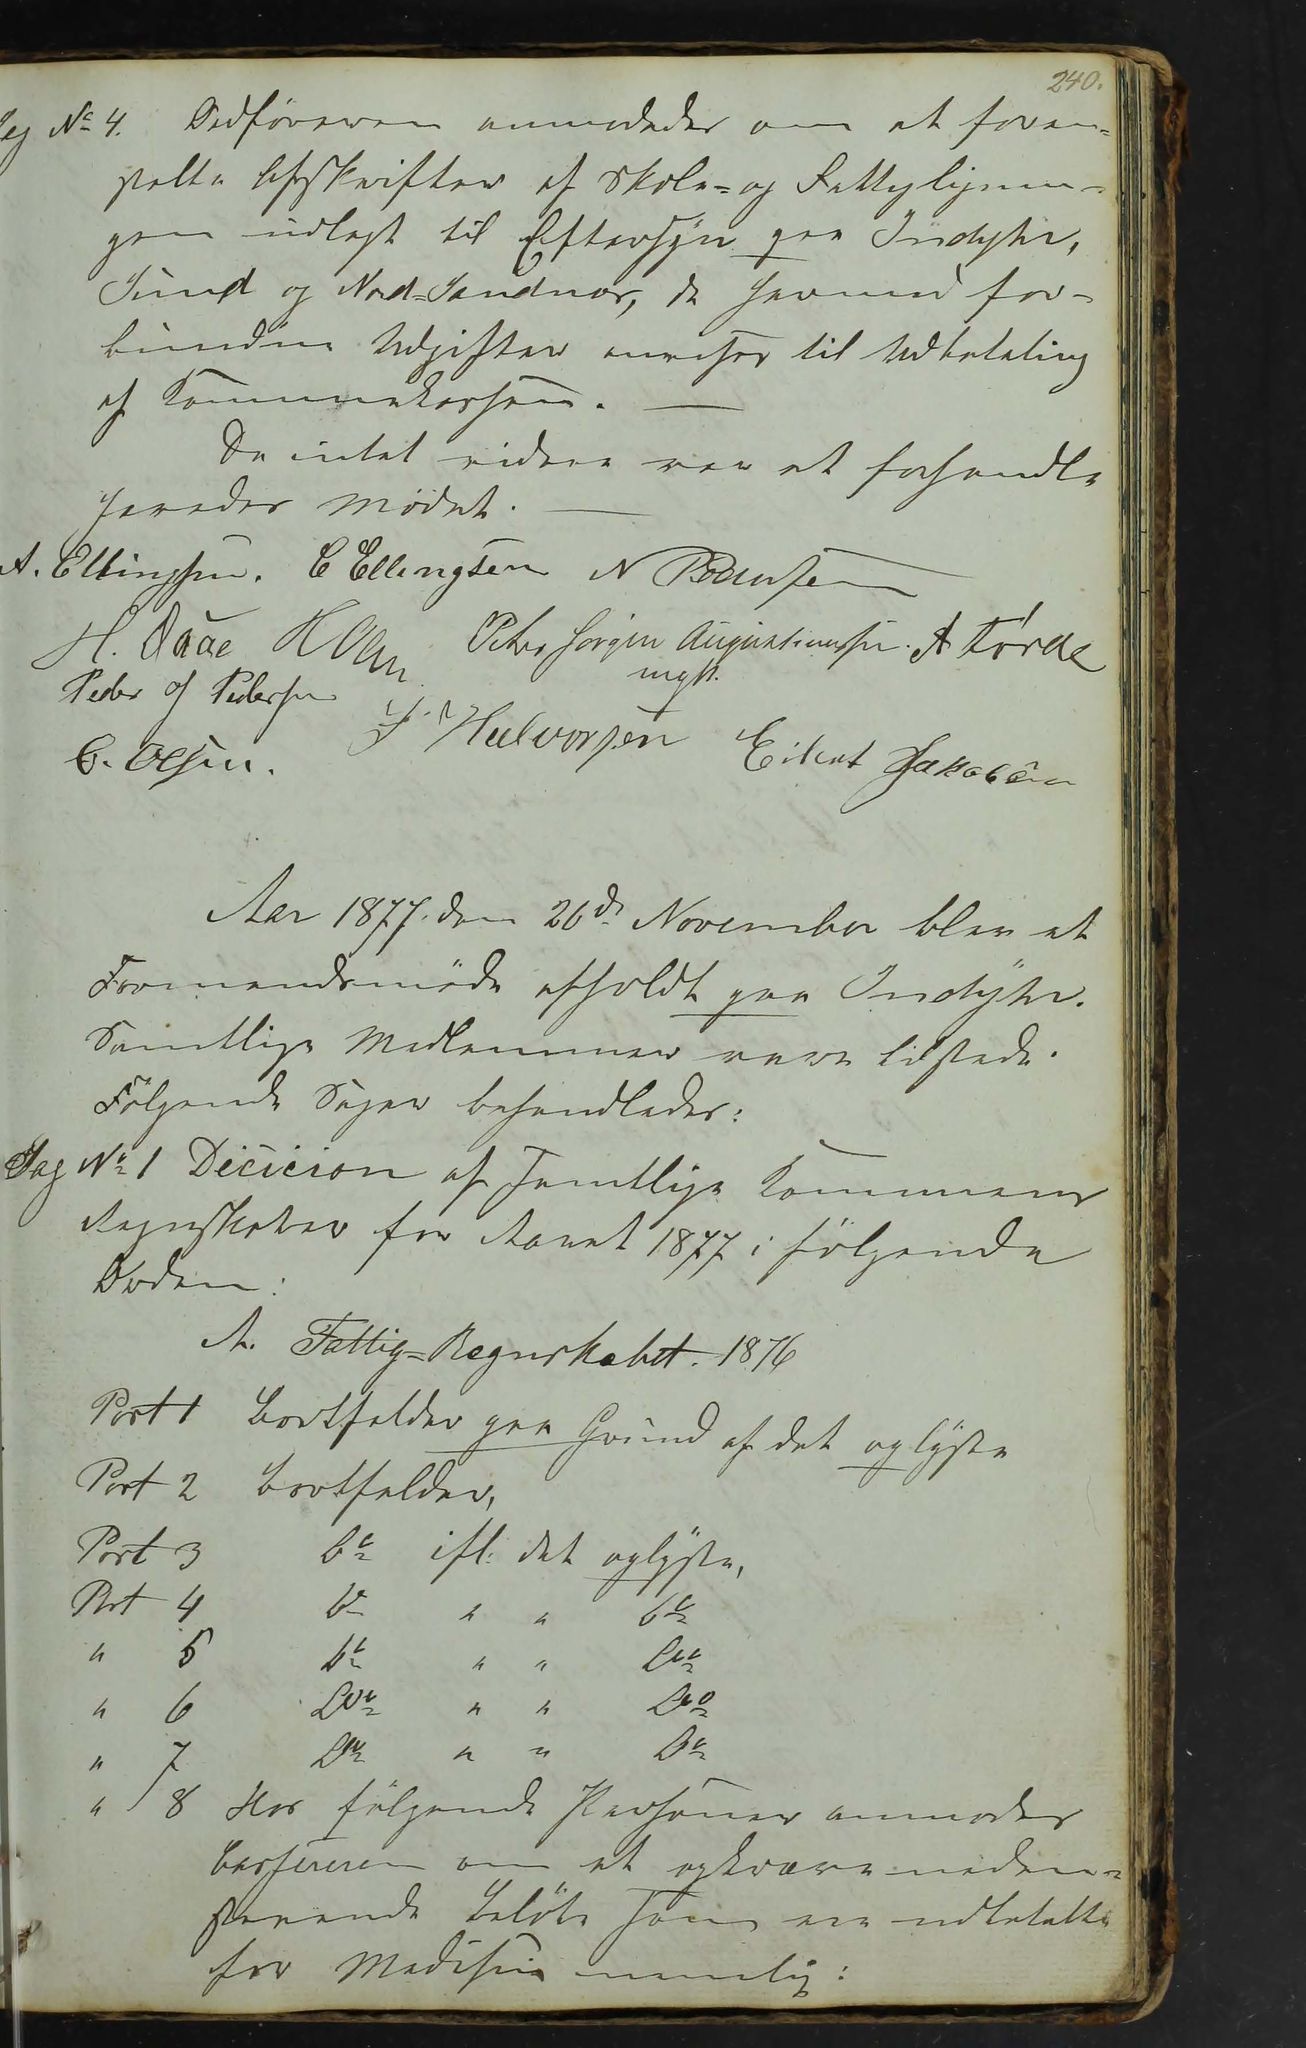 240.
Sag No 4. Ordføreren anmodedes om at foran-
stalte Afskrifter af Skole- og Fattiglignin-
gen udlagt til Eftersyn paa Indyhr,
Sund og Nord-Sandnæs, de hermed for-
bundne Udgifter anvises til Udbetaling
af Kommunekassen. —
Da intet videre var at forhandle
hævedes Mødet. —
A. Ellingsen. C Ellingsen N
H. Daae H Olsen Peter Jørgen Augustinussen. A Førde
mpp.
Peder Pedersen
J Halvorsen Eilert Jakobsen
C. Olsen.
Aar 1877 den 26de November blev et
Formandsmøde afholdt paa Indyhr.
Samtlige Medlemmer vare tilstede.
Følgende Sager behandledes:
Sag No 1 Decicion af samtlige Kommunens
Regnskaber for Aaret 1877 i følgende
Orden:
A. Fattig-Regnskabet. 1876
Post 1 bortfalder paa Grund af det oplyste
Post 2 bortfalder,
Post 3 do ifl: det oplyste,
Post 4 do " " do
" 5 do " " do
" 6 do " " do
" 7 do " " do
" 8 Hos følgende Personer anmodes
Kassereren om at opkræve neden-
staaende Beløb som ere udbetalte
for Medisin nemlig: